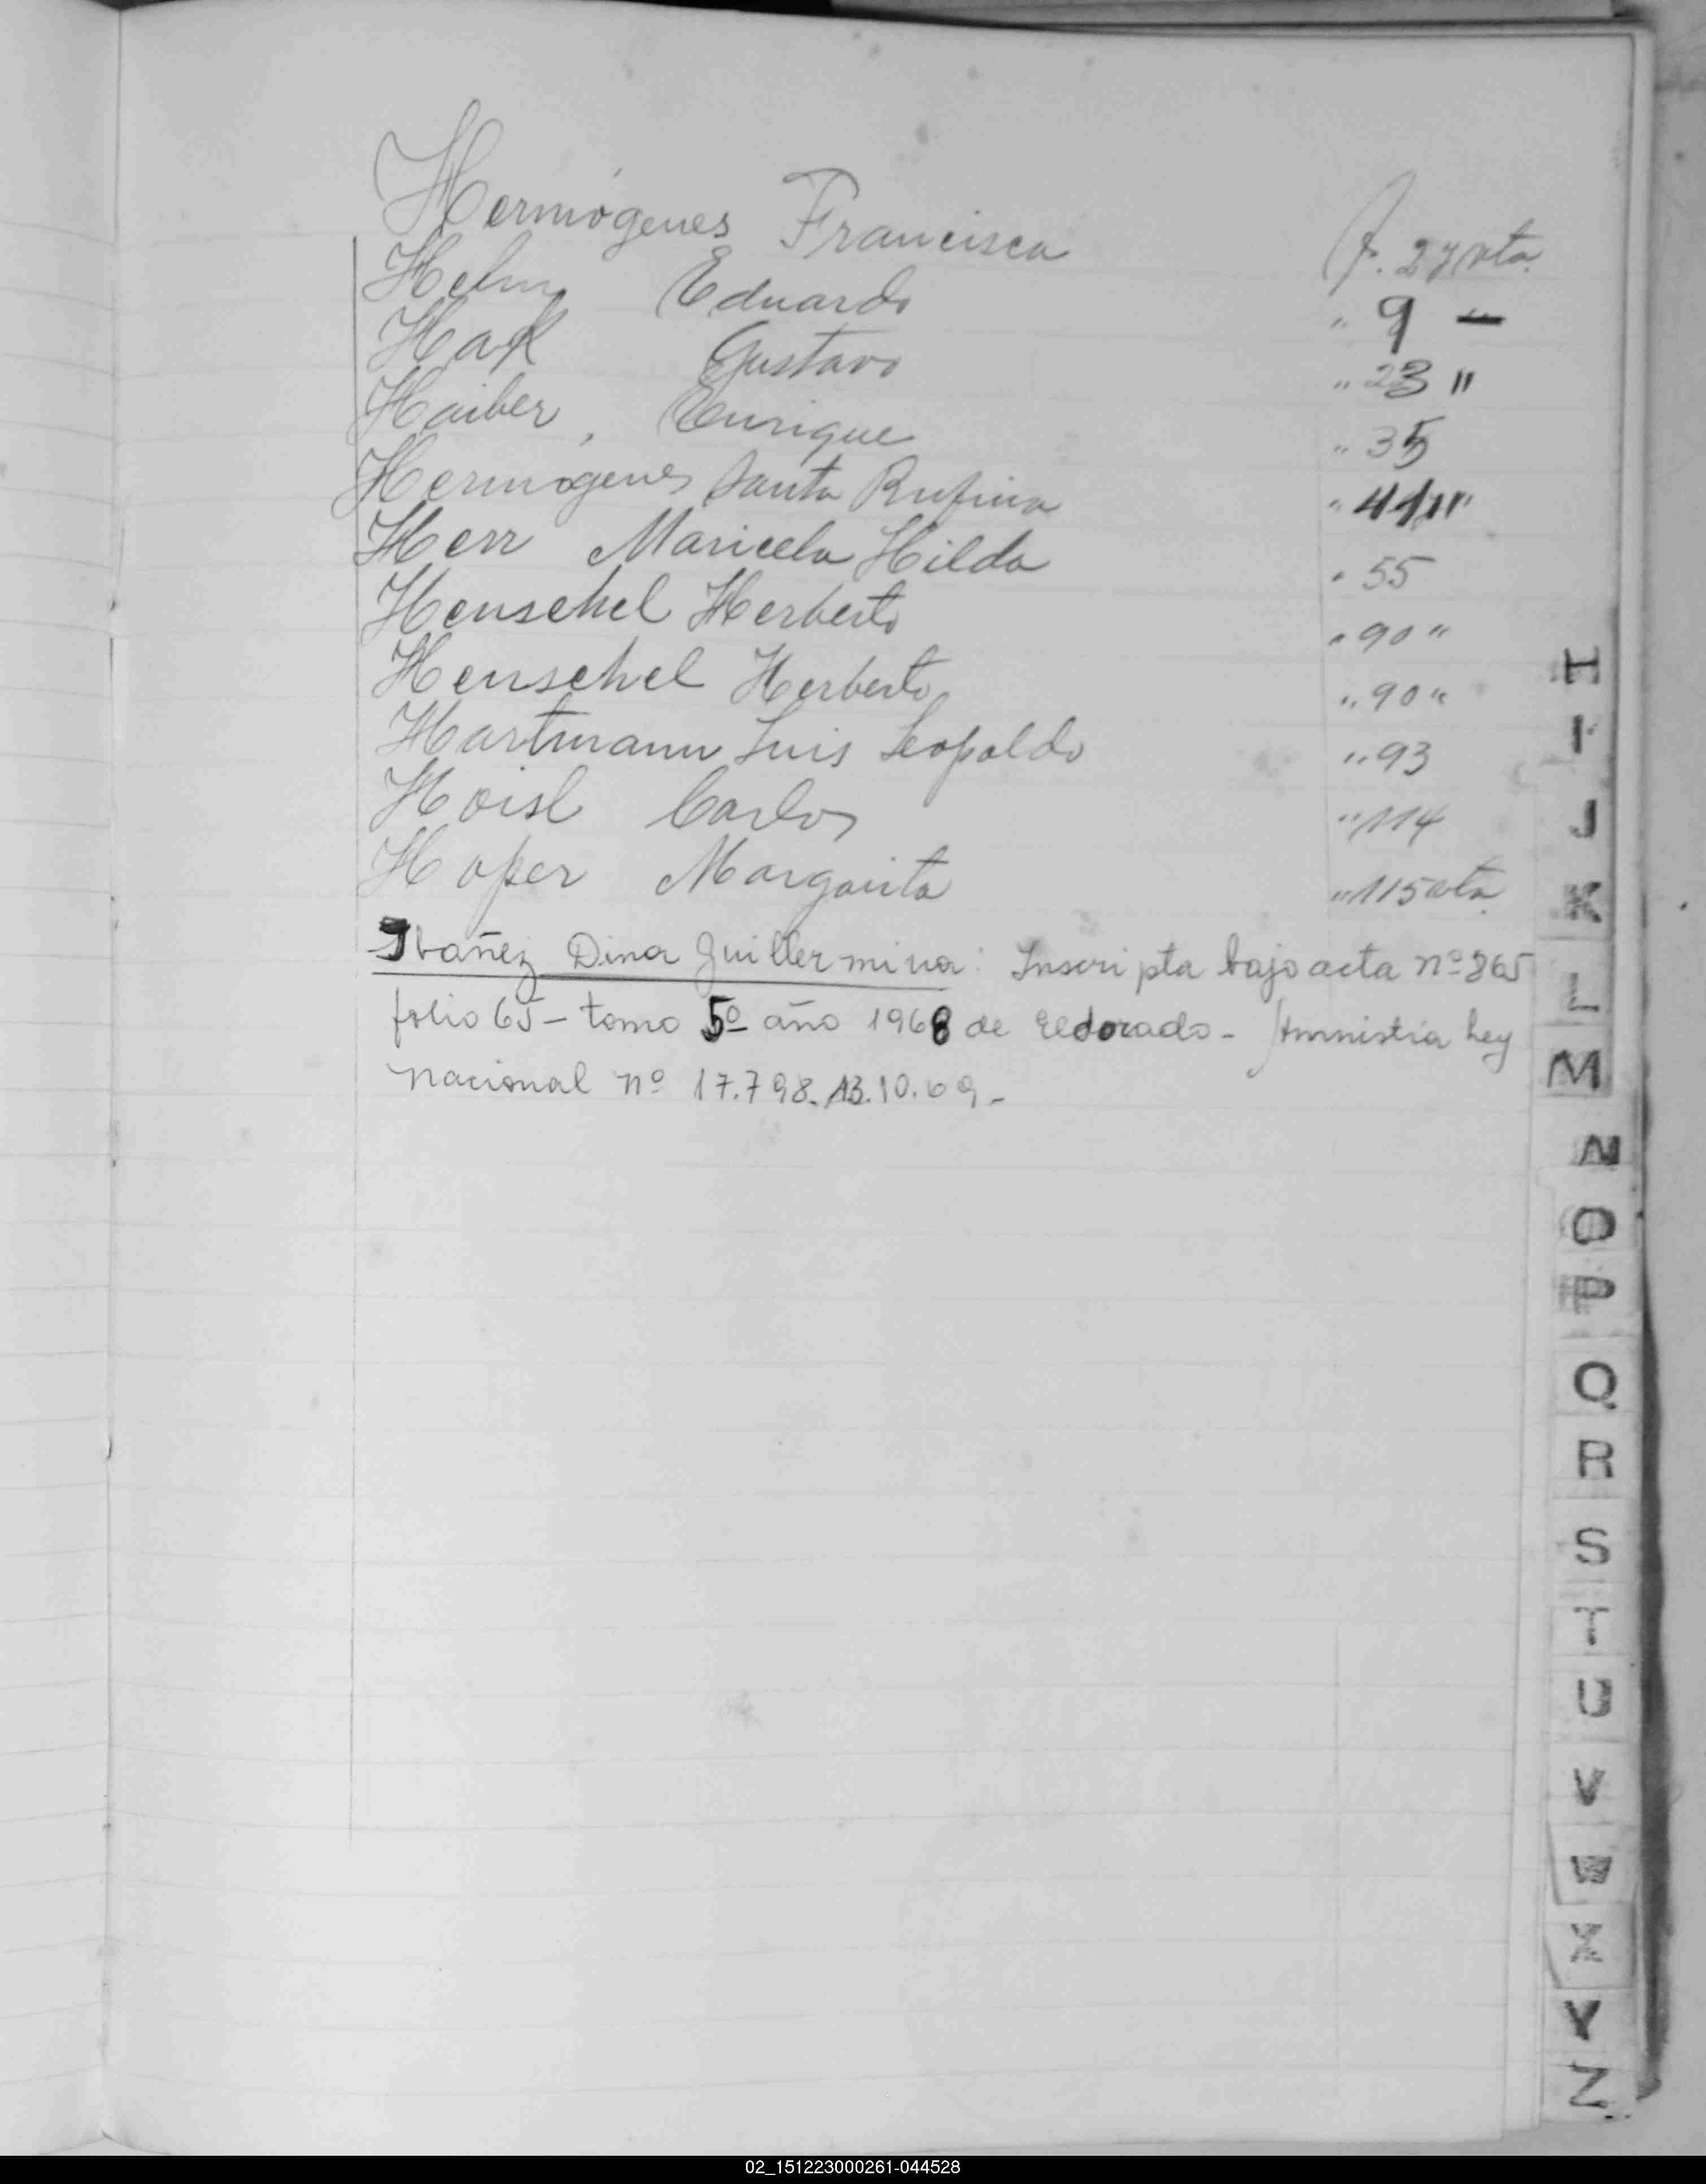 Hermógenes Francisca f. 27 vta.
Helm Eduardo " 9 —
Hak Gustavo " 23 "
Haiber, Enrique " 35
Hermógenes Santa Rufina " 41 "
Herr Maricela Hilda " 55
Henschel Herberto " 90 "
Henschel Herberto " 90 "
Hartmann Luis Leopoldo " 93
Hoisl Carlos " 114
Hoper Margarita " 115 vta.
Ibañez Dina Guillermina: Inscripta bajo acta nº 865
folio 65 - tomo 5º año 1968 de Eldorado - Amnistia Ley
nacional nº 17.798. 13.10.69.-
H
I
J
K
L
M
N
O
P
Q
R
S
T
U
V
W
X
Y
Z
02_151223000261-044528